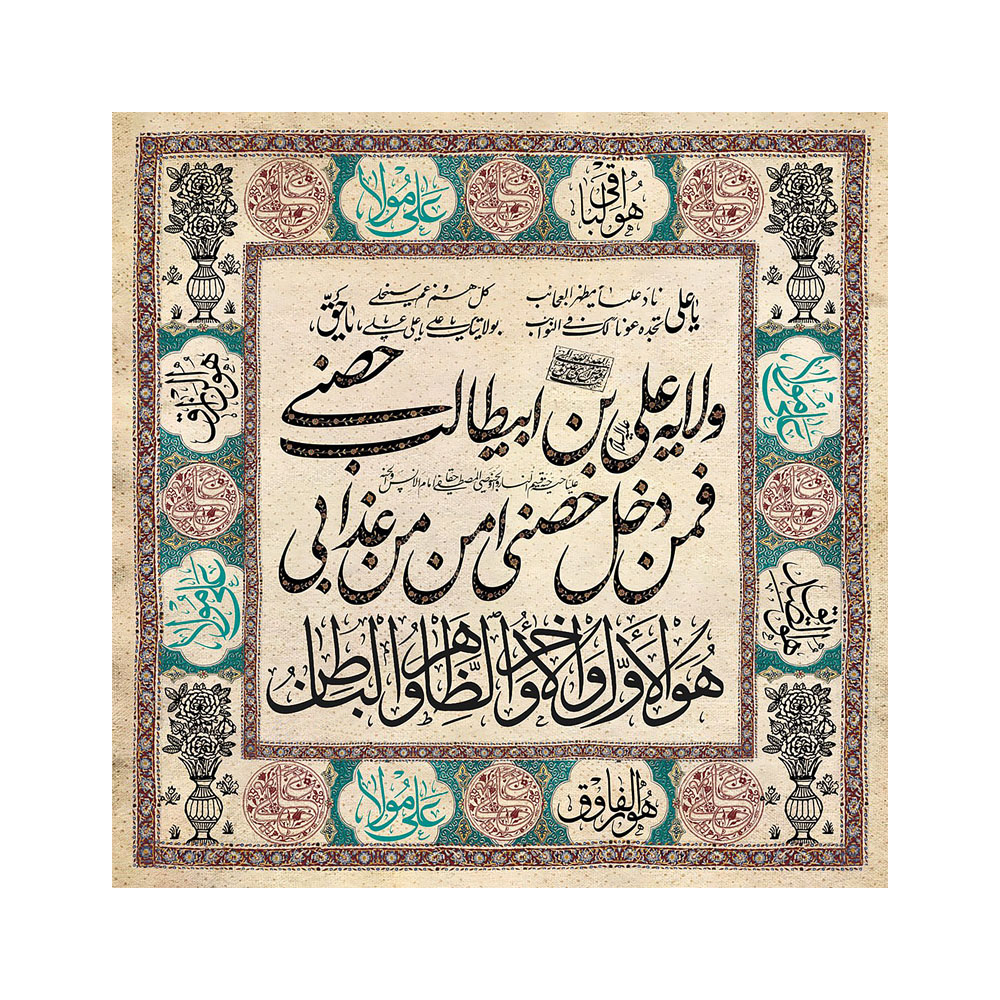 هو الباقی
علی مولا
یا علی
ناد علیا مظهر العجائب
کل هم و غم سینجلی
تجده عونا لک فی النوائب
بولایتک یا علی یا علی یا علی، یا حق،
ولایه علی بن ابیطالب حصنی
علیه السلام
فمن دخل حصنی امن من عذابی
هُوَ الاَوَّل وَ الآخِر وَ الظَّاهِر وَ الباطن
علی مولا
هو الرزاق
علی مولا
هو الفاروق
علی مولا